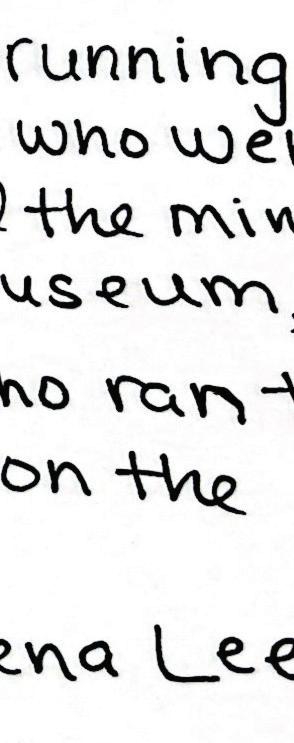 running
who wer
the min
useum,
ho ran t
on the
ena Lee